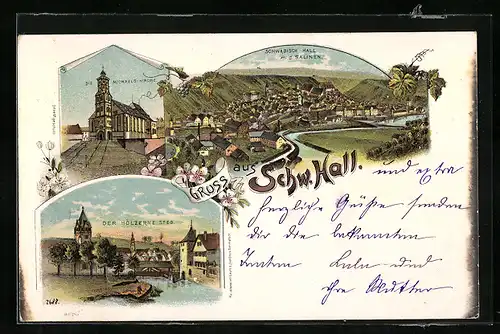 DIE MICHAELS-KIRCHE
SCHWÄBISCH HALL
M. D. SALINEN
GRUSS aus Schw. Hall.
DER HÖLZERNE STEG
2618.
und extra
herzliche Grüße senden
dir die bekannten
Tanten Lulu und
ihre Mutter